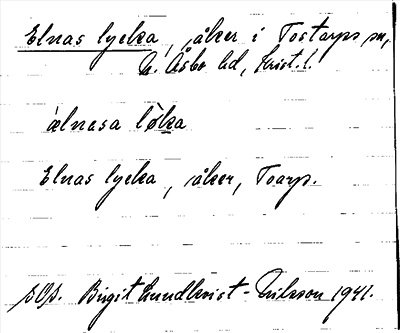 Elnas lycka, åker i Tostarps sn,
N. Åsbo hd, Krist. l.
ælnasa løka
Elnas lycka, åker, Toarp.
SOS. Birgit Lundkvist-Nilsson 1941.